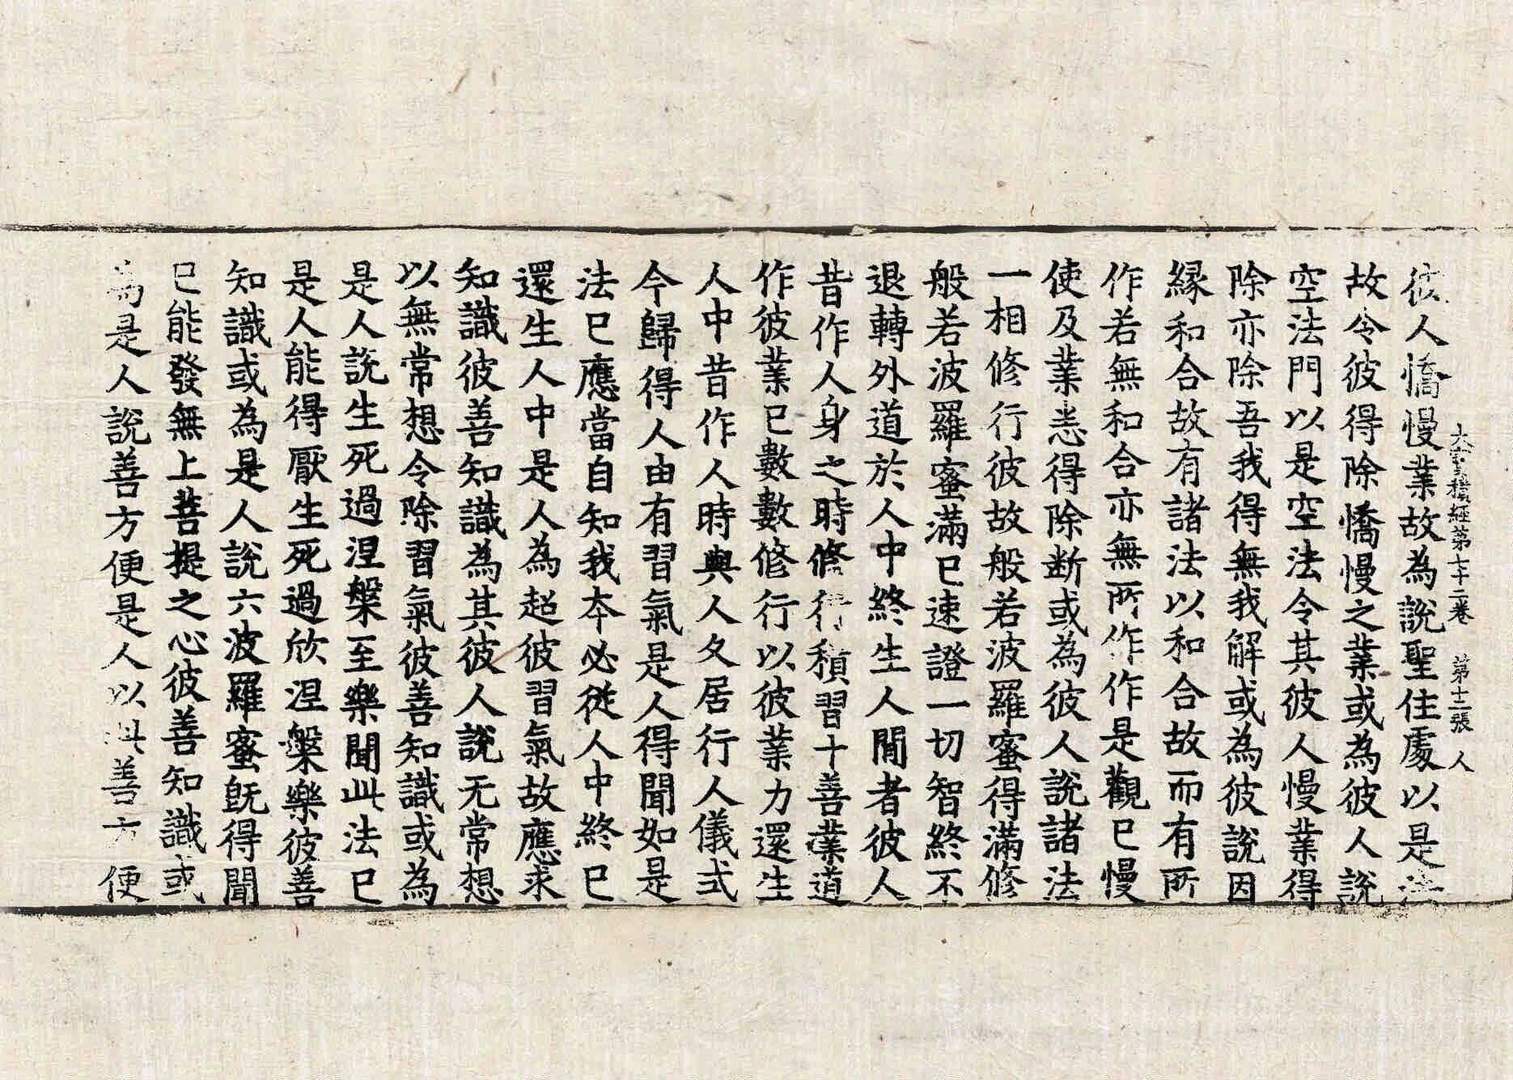 大寶積經第七十二卷 第十二張 人
彼人憍慢業故為說聖住處以是法
故令彼得除憍慢之業或為彼人說
空法門以是空法令其彼人慢業得
除亦除吾我得無我解或為彼說因
緣和合故有諸法以和合故而有所
作若無和合亦無所作作是觀已慢
使及業悉得除断或為彼人說諸法
一相修行彼故般若波羅蜜得滿修
般若波羅蜜滿已速證一切智終不
退轉外道於人中終生人間者彼人
昔作人身之時修行積習十善業道
作彼業已數數修行以彼業力還生
人中昔作人時與人久居行人儀式
今歸得人由有習氣是人得聞如是
法已應當自知我本必從人中終已
還生人中是人為起彼習氣故應求
知識彼善知識為其彼人說无常想
以無常想令除習氣彼善知識或為
是人說生死過涅槃至樂聞此法已
是人能得厭生死過欣涅槃樂彼善
知識或為是人說六波羅蜜既得聞
已能發無上菩提之心彼善知識或
為是人說善方便是人以此善方便